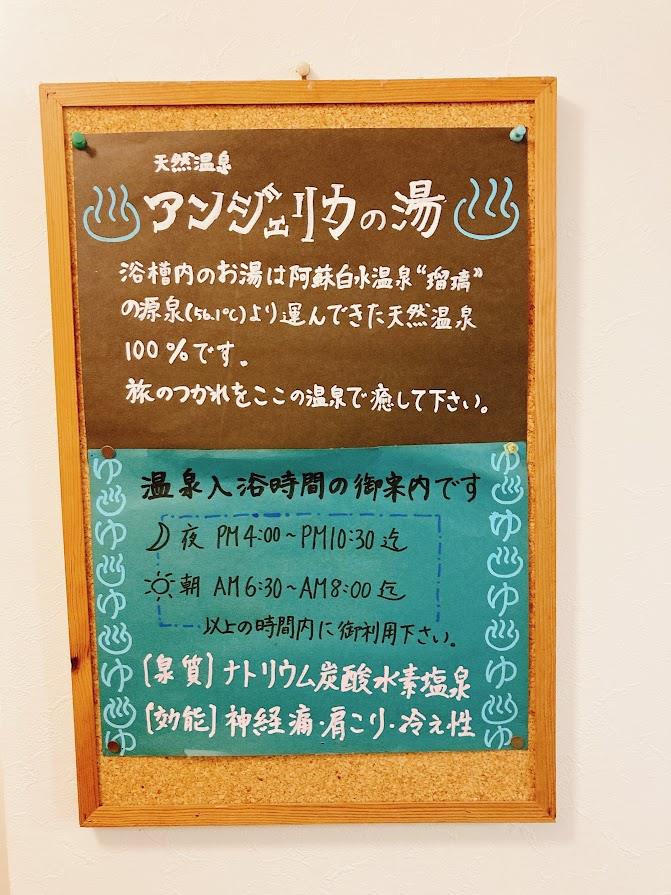 天然温泉
アンジェリカの湯
浴槽内のお湯は阿蘇白水温泉“瑠璃”
の源泉(56.1℃)より運んできた天然温泉
100%です。
旅のつかれをここの温泉で癒して下さい。
温泉入浴時間の御案内です
夜 PM4:00~PM10:30迄
朝 AM6:30~AM8:00迄
以上の時間内に御利用下さい。
[泉質]ナトリウム炭酸水素塩泉
[効能]神経痛・肩こり・冷え性
ゆ ゆ ゆ ゆ ゆ
ゆ ゆ ゆ ゆ ゆ